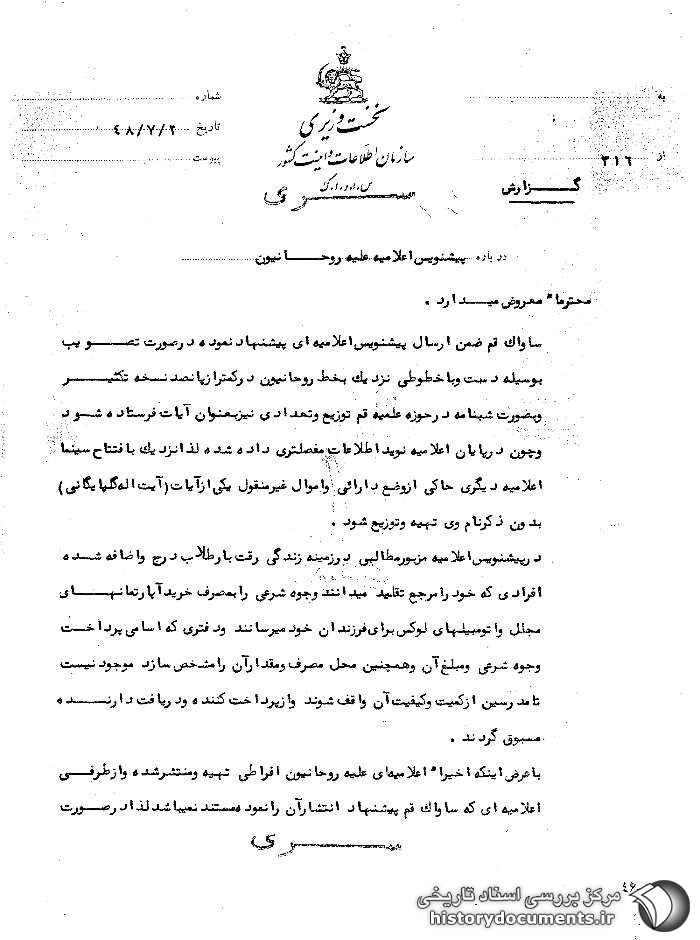 به
شماره
نخست وزیری
تاریخ ۴۸/۷/۲
سازمان اطلاعات و امنیت کشور
از ۳۱۶
پیوست
س.ا.و.ا.ک
گزارش
سری
درباره پیشنویس اعلامیه علیه روحانیون
محترما" معروض میدارد .
ساواک قم ضمن ارسال پیشنویس اعلامیه ای پیشنهاد نموده درصورت تصویب
بوسیله دست وباخطوطی نزدیک بخط روحانیون درکمتراز پانصد نسخه تکثیر
وبصورت شبنامه درحوزه علمیه قم توزیع وتعدادی نیزبعنوان آیات فرستاده شود
وچون درپایان اعلامیه نوید اطلاعات مفصلتری داده شده لذا نزدیک بافتتاح سینما
اعلامیه دیگری حاکی ازوضع دارائی واموال غیرمنقول یکی ازآیات (آیت اله گلپایگانی)
بدون ذکرنام وی تهیه وتوزیع شود .
درپیشنویس اعلامیه مزبورمطالبی درزمینه زندگی رقت بارطلاب درج واضافه شده
افرادی که خود را مرجع تقلید میدانند وجوه شرعی رابمصرف خرید آپارتمانهای
مجلل واتومبیلهای لوکس برای فرزندان خود میرسانند ودفتری که اسامی پرداخت
وجوه شرعی ومبلغ آن وهمچنین محل مصرف ومقدارآن رامشخص سازد موجود نیست
تامدرسین ازکمیت وکیفیت آن واقف شوند وازپرداخت کننده ودریافت دارنده
مسبوق گردند .
باعرض اینکه اخیرا" اعلامیه‌ای علیه روحانیون افراطی تهیه ومنتشرشده وازطرفی
اعلامیه ای که ساواک قم پیشنهاد انتشارآن رانموده مستند نمیباشد لذا درصورت
سری
۴۶
مرکز بررسی اسناد تاریخی
historydocuments.ir